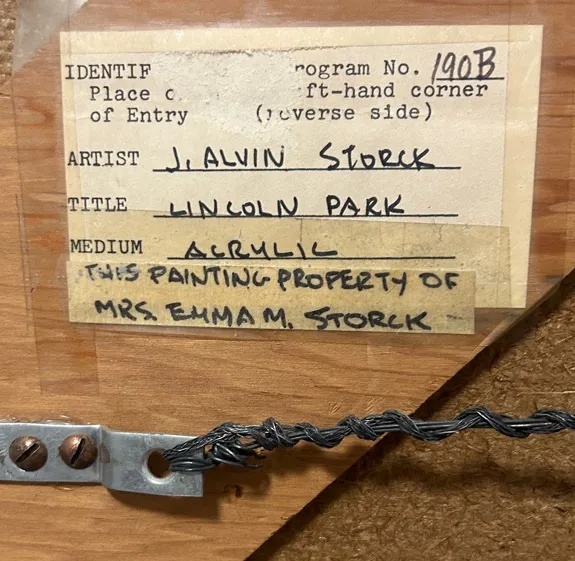 IDENTIF rogram No. 190B
Place o ft-hand corner
of Entry (reverse side)
ARTIST J. ALVIN STORCK
TITLE LINCOLN PARK
MEDIUM ACRYLIC
THIS PAINTING PROPERTY OF
MRS. EMMA M. STORCK